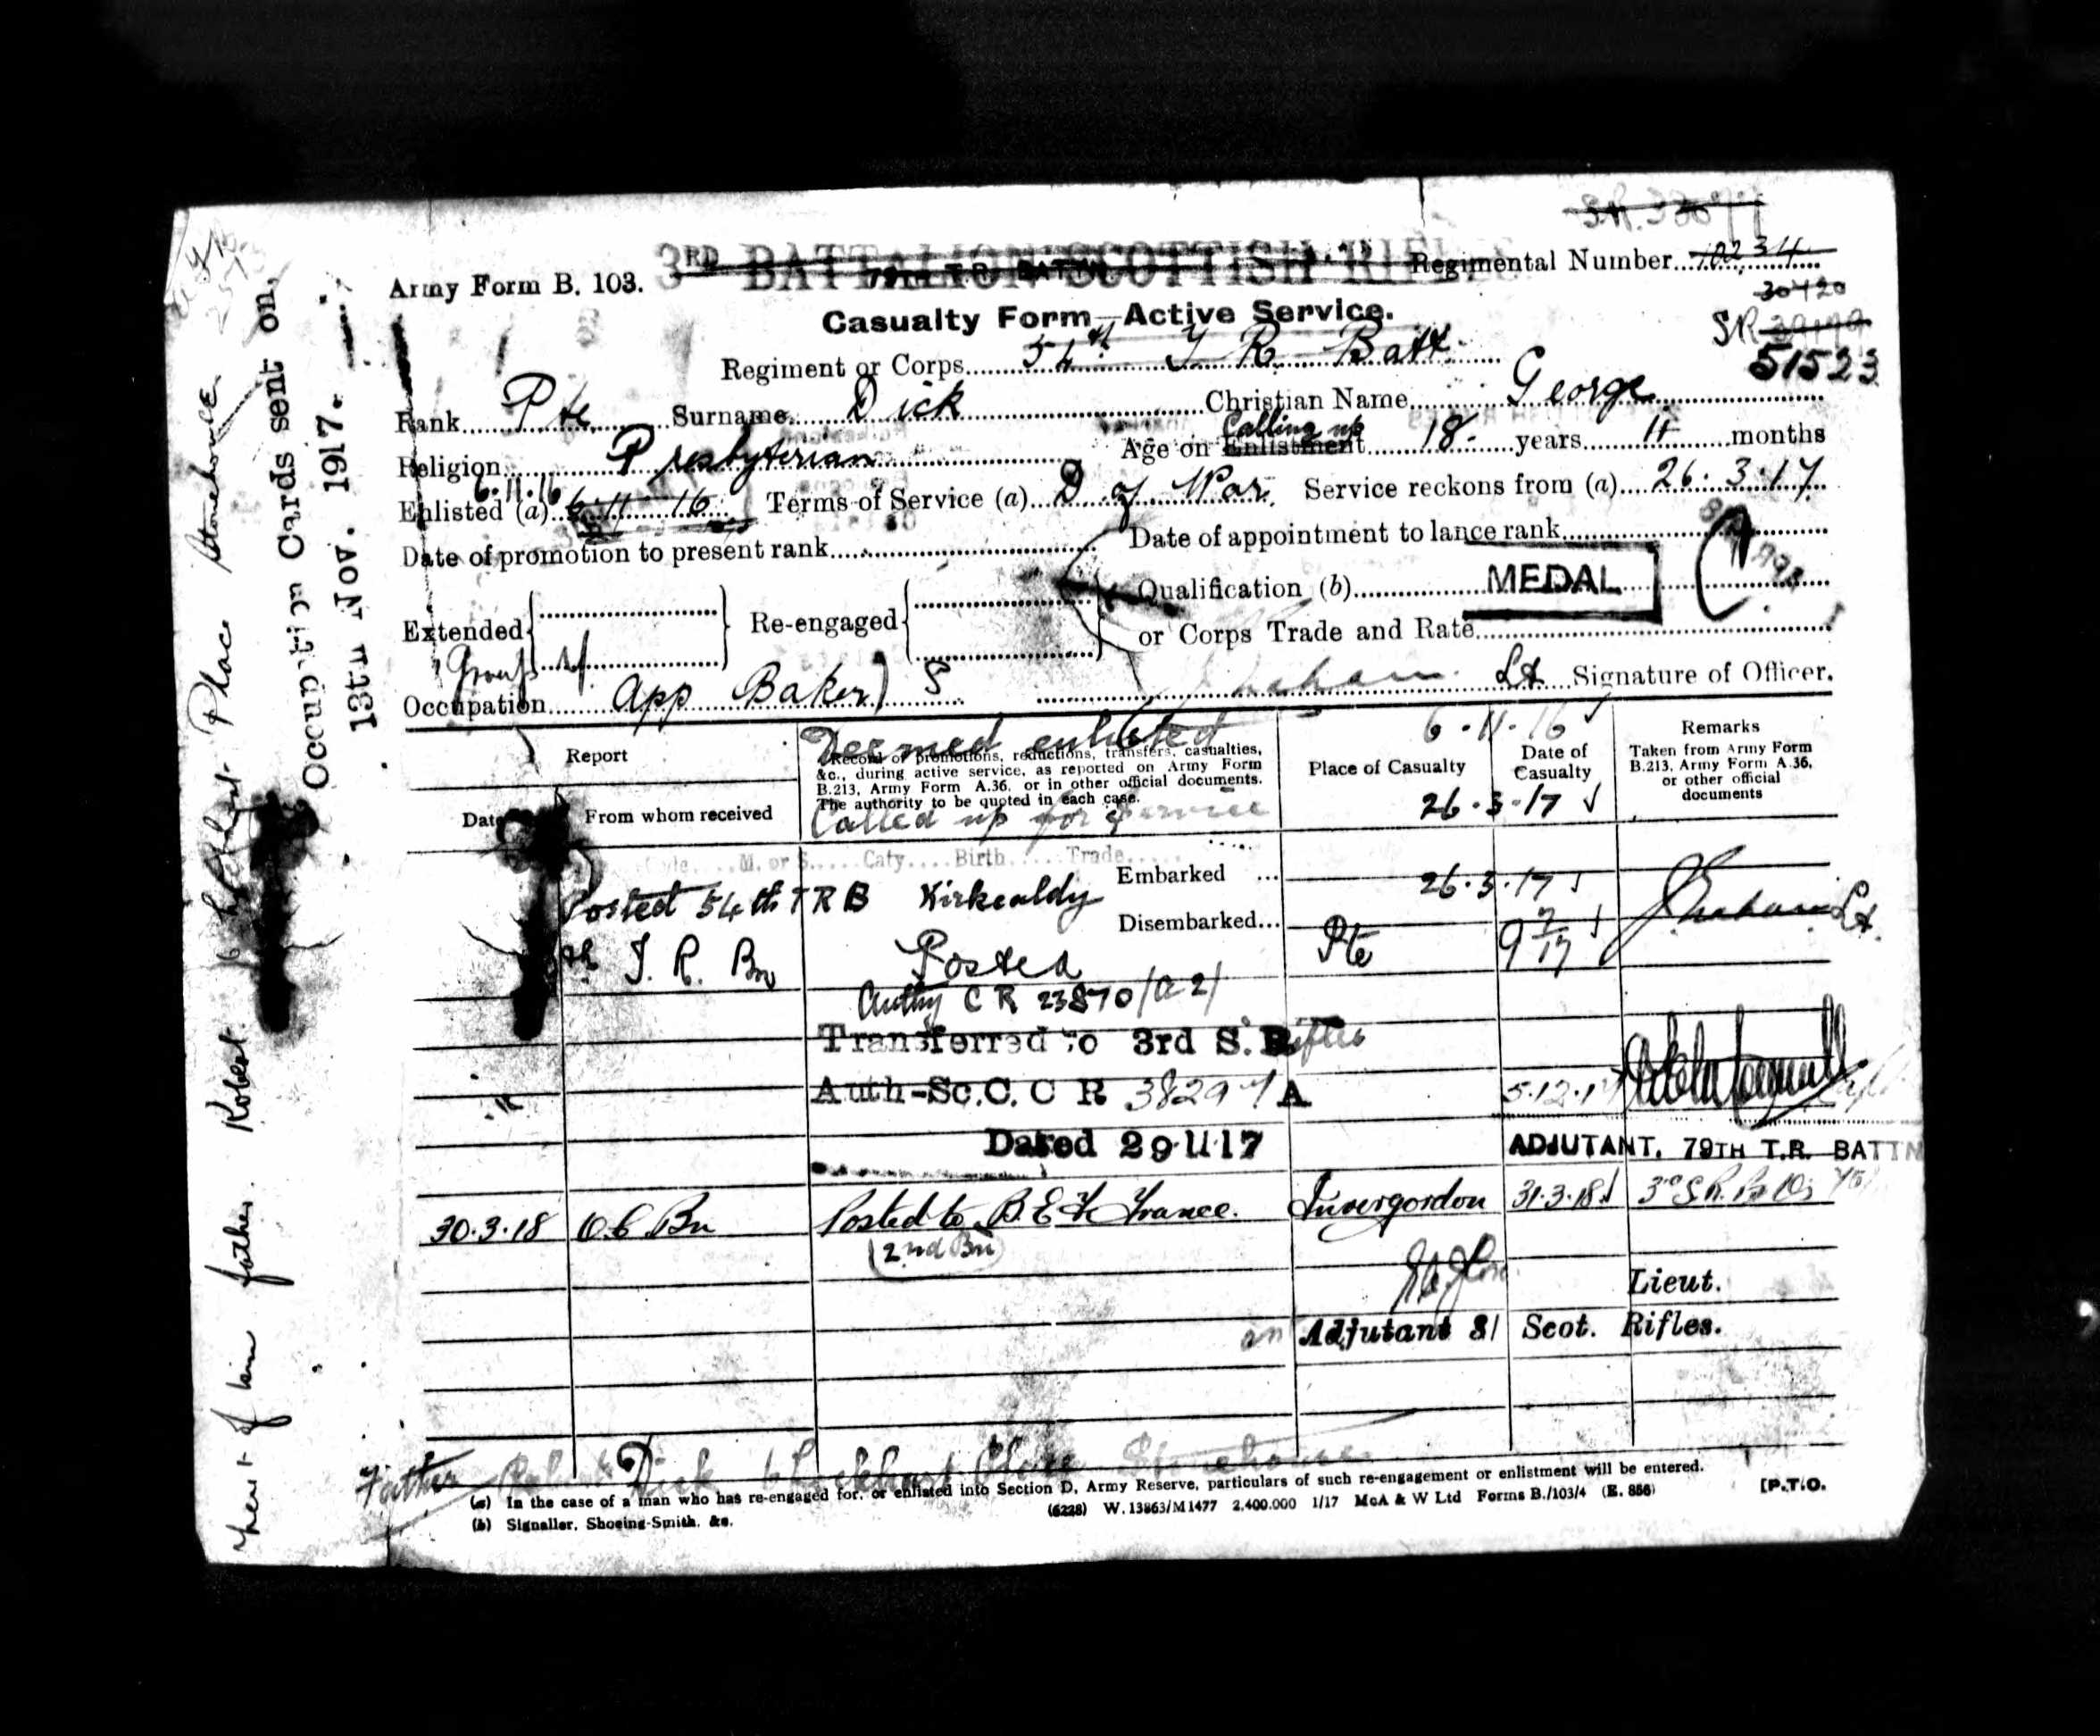 Army Form B. 103.
3RD BATTALION SCOTTISH RIFLES
79TH T.R. BATTN
Regimental Number 10234
30420
SR
51523
Casualty Form—Active Service.
Regiment or Corps 54th T R Batt
Rank Pte Surname Dick Christian Name George
Religion Presbyterian Age on Enlistment Calling up 18 years 11 months
Enlisted (a) 6·11·16 6·11·16 Terms of Service (a) D of War. Service reckons from (a) 26·3·17
Date of promotion to present rank Date of appointment to lance rank
Extended Re-engaged Qualification (b) MEDAL
or Corps Trade and Rate
Occupation App Baker Lt Signature of Officer.
Deemed enlisted 6·11·16
Report
Date From whom received
Record of promotions, reductions, transfers, casualties, &c., during active service, as reported on Army Form B.213, Army Form A.36, or in other official documents. The authority to be quoted in each case.
Place of Casualty
Date of Casualty
Remarks
Taken from Army Form B.213, Army Form A.36, or other official documents
Called up for Service 26·3·17
M. or S. Caty. Birth Trade
Embarked ...
Posted 54th T R B Kirkcaldy 26·3·17
Disembarked... Lt.
T. R. Bn Posted Pte 9 7/17
Authy C R 23870/(a2)
Transferred to 3rd S. Rifles
Auth-Sc.C. C R 38297 A 5·12·17
Dated 29·11·17
ADJUTANT, 79TH T.R. BATTN
30·3·18 O.C. Bn Posted to B.E.F. France. Invergordon 31·3·18
(2nd Bn)
Lieut.
Adjutant 3/ Scot. Rifles.
Father Robert Dick 6 Lockhart Place Stonehouse
(a) In the case of a man who has re-engaged for, or enlisted into Section D, Army Reserve, particulars of such re-engagement or enlistment will be entered.
(b) Signaller, Shoeing-Smith, &c.
(6228) W.13863/M1477 2,400,000 1/17 McA & W Ltd Forms B./103/4 (E. 856)
[P.T.O.
Occupation Cards sent on,
13th Nov. 1917.
Next of kin father. Robert 6 Lockhart Place Stonehouse